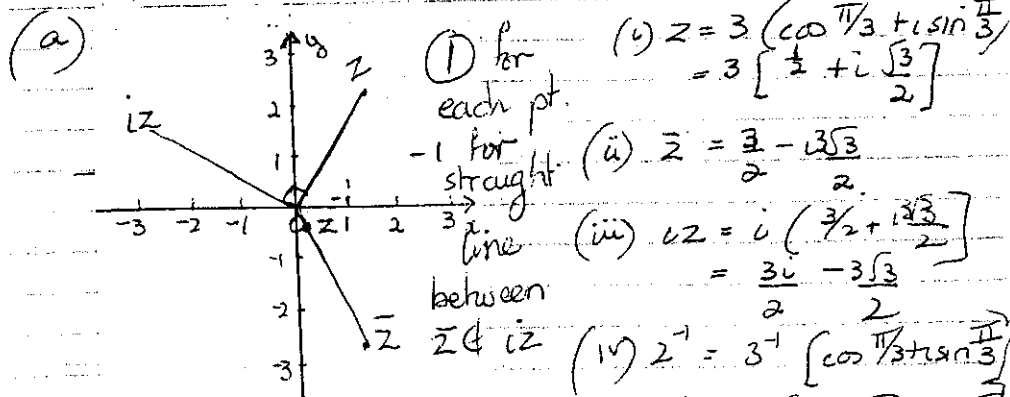 (a)
y
3
2
1
-1
-2
-3
-3 -2 -1 1 2 3 x
z
iz
z̄
z⁻¹
① for
each pt.
-1 for
straught
line
between
z̄ & iz
(i) z = 3 (cos π/3 + i sin π/3)
= 3 [½ + i √3/2]
(ii) z̄ = 3/2 - i3√3/2
(iii) iz = i (3/2 + i3√3/2]
= 3i/2 - 3√3/2
(iv) z⁻¹ = 3⁻¹ [cos π/3 + i sin π/3]